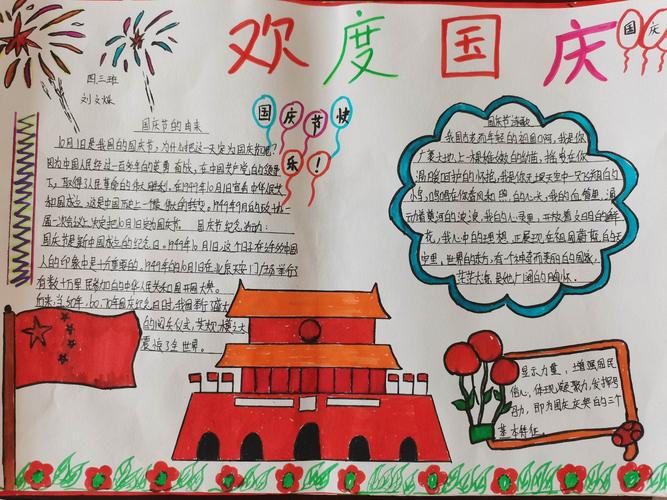 欢度国庆
国庆
四三班
国庆节快
乐!
国庆节的由来
10月1日是我国的国庆节,为什么把这一天定为国庆节呢?
因为中国人民经过一百多年的英勇奋战,在中国共产党的领导
下,取得了人民革命的伟大胜利,在1949年10月1日宣告中华人民共
和国成立,这是中国历史上一个最伟大的转变。1949年9月的政协一
届一次会议上决定把10月1日定为国庆节。 国庆节纪念活动:
国庆节是新中国成立的纪念日。1949年10月1日,这个日子在许多中国
人的印象中是十分重要的,1949年的10月1日在北京天安门广场举行
有数十万军民参加的中华人民共和国开国大典。
的阅兵仪式,
震惊了全世界。
国庆节诗歌
我国古老而年轻的祖国啊,我是你
广袤大地上一棵
温暖呵护的怀抱,
我的血管里,涌
动着黄河的波浪,我的心灵里,开放着文明的
花,我心中的理想,正展现在祖国蔚蓝的天
空里,世界的东方,有个神奇而美丽的国家,
显示力量、增强国民
信心,体现凝聚力,发挥号
召力,即为国庆庆典的三个
基本特征。